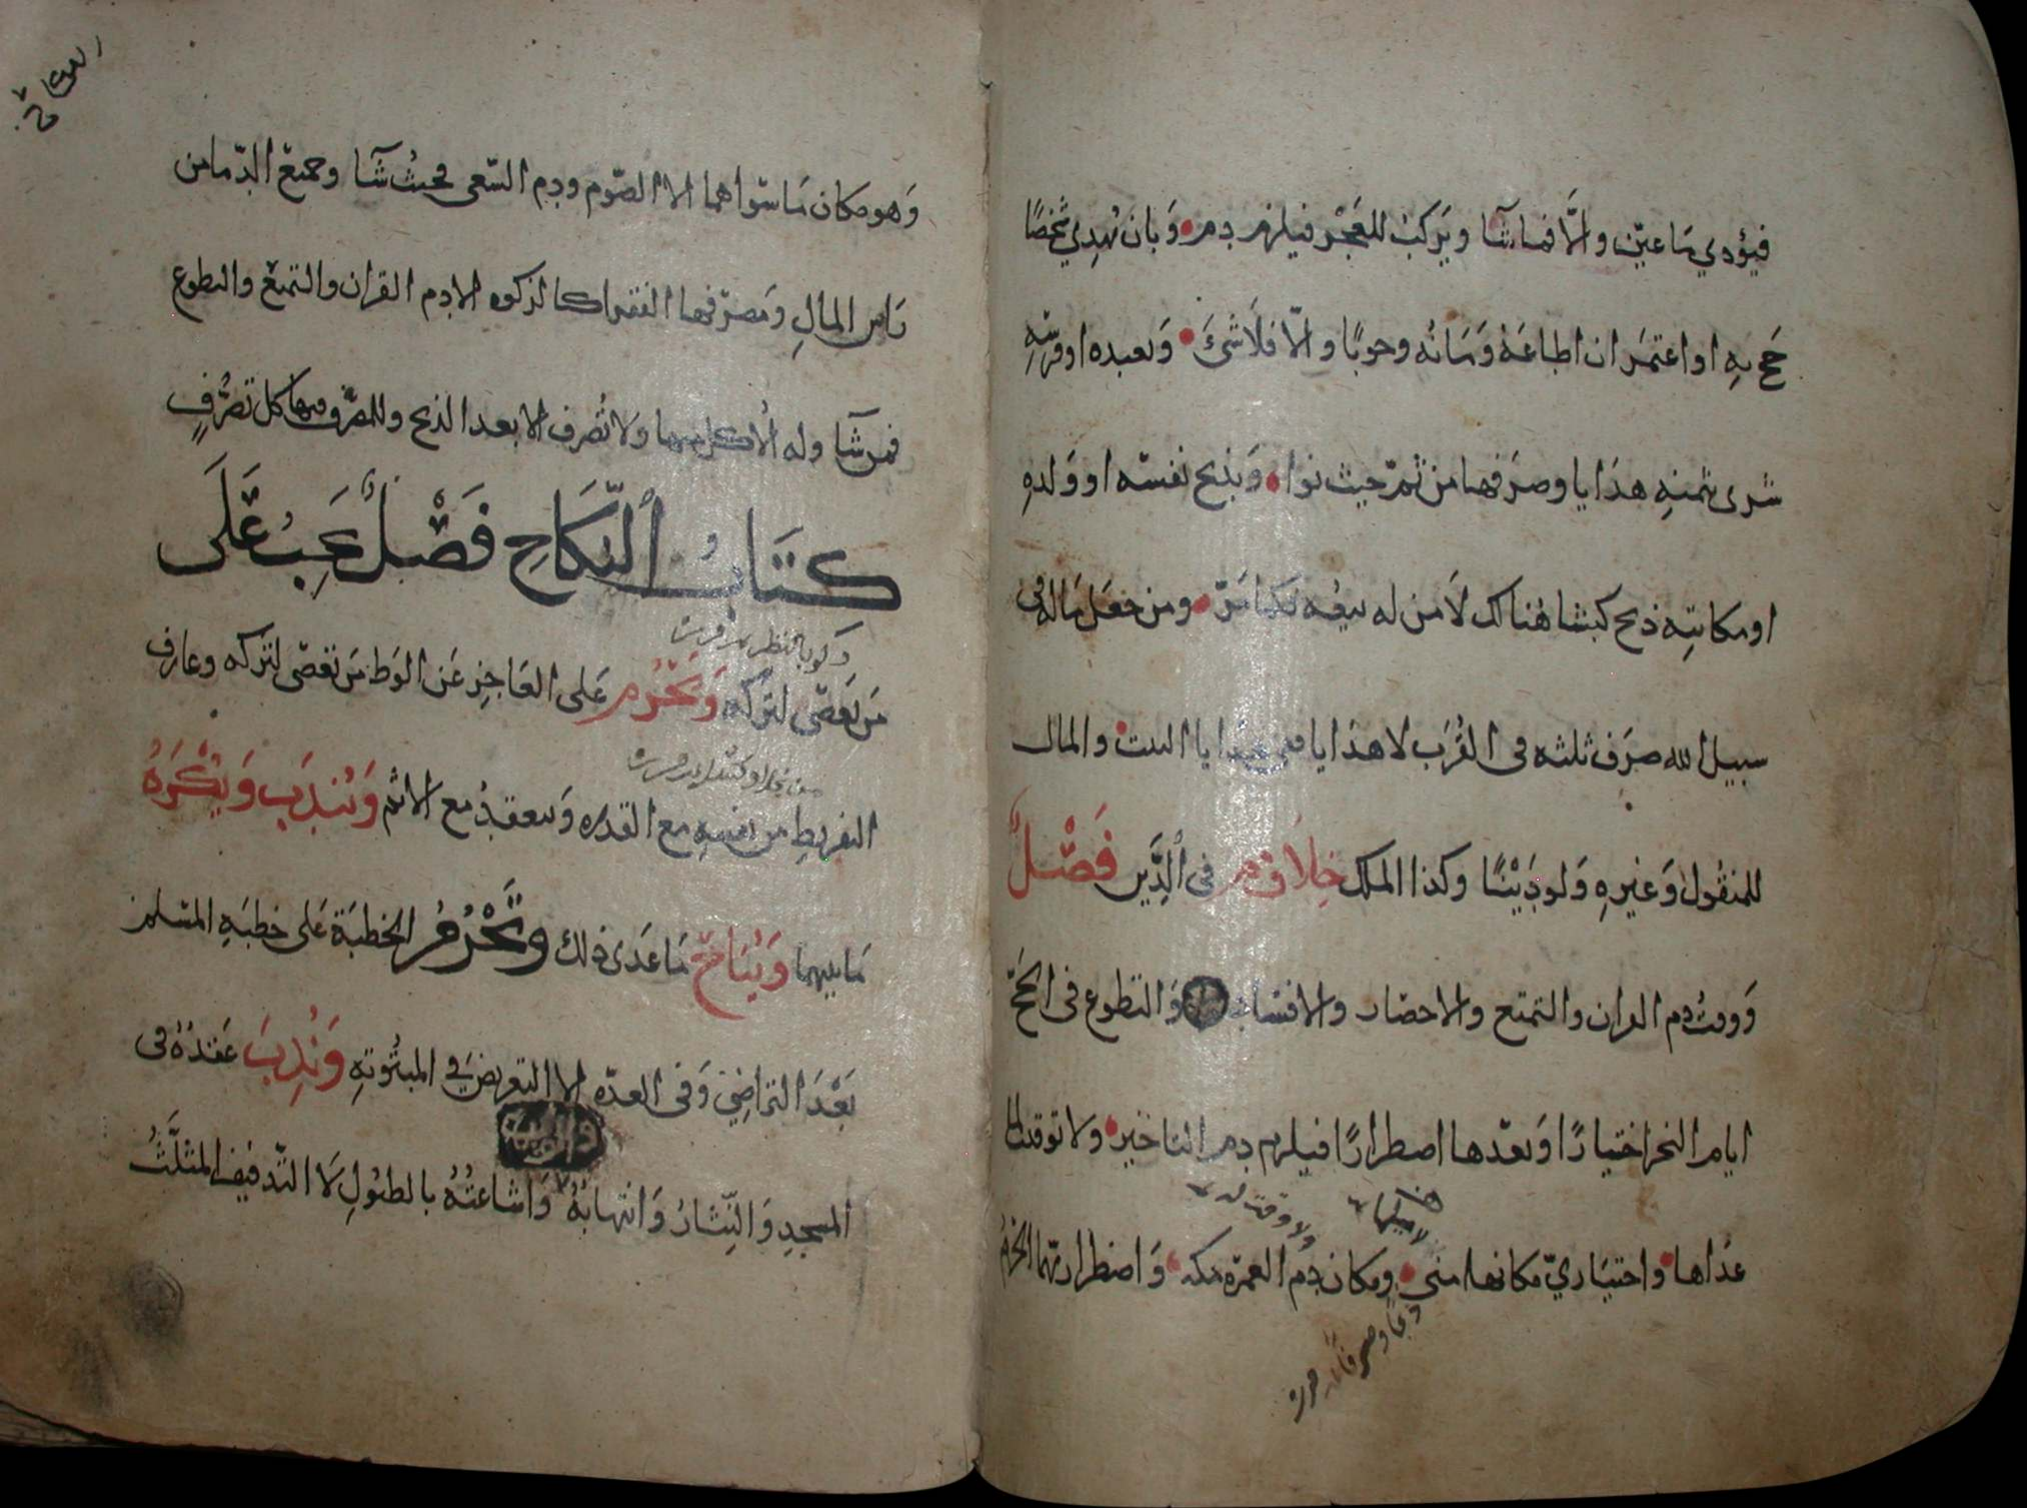 فيؤدي ما عين والا فما شا ويركب للعجز فيلزم دم وبان يهدي شخصا
حج به او اعتمر ان اطاعه ومانه وجوبا والا فلا شئ وبعبده او فرسه
شرى بثمنه هدايا وصرفها من ثم حيث نوا وبذبح نفسه او ولده
او مكاتبه ذبح كبشا هناك لا من له بيعه فكما مر ومن جعل ماله في
سبيل الله صرف ثلثه في القرب لا هدايا ففي هدايا البيت والمال
للمنقول وغيره ولو دينا وكذا الملك خلاف م في الدين فصل
ووقت دم القران والتمتع والاحصار والافساد والتطوع في الحج
ايام النحر اختيارا وبعدها اضطرارا فيلزم دم التاخير ولا توقيت لما
عداها واختياري مكانها منى ومكان دم العمرة مكه واضطراريهما الحرم
وهو مكان ما سواهما الا الصوم ودم السعي فحيث شآ وجميع الدما من
راس المال ومصرفها الفقرا كالزكوه الا دم القران والتمتع والتطوع
فمن شآ وله الاكل منها ولا تصرف الا بعد الذبح وللمصرف فيها كل تصرف
كتاب النكاح فصل يجب على
من يعصي لتركه ويحرم على العاجز عن الوطء من تعصي لتركه وعارف
التفريط من نفسه مع القدره وينعقد مع الاثم ويندب ويكره
ما بينهما ويباح ما عدى ذلك وتحرم الخطبة على خطبه المسلم
بعد التراضي وفي العده الا التعريض في المبتوته وندب عقده في
المسجد والنثار وانتهابه واشاعته بالطبول لا التدفيف المثلث